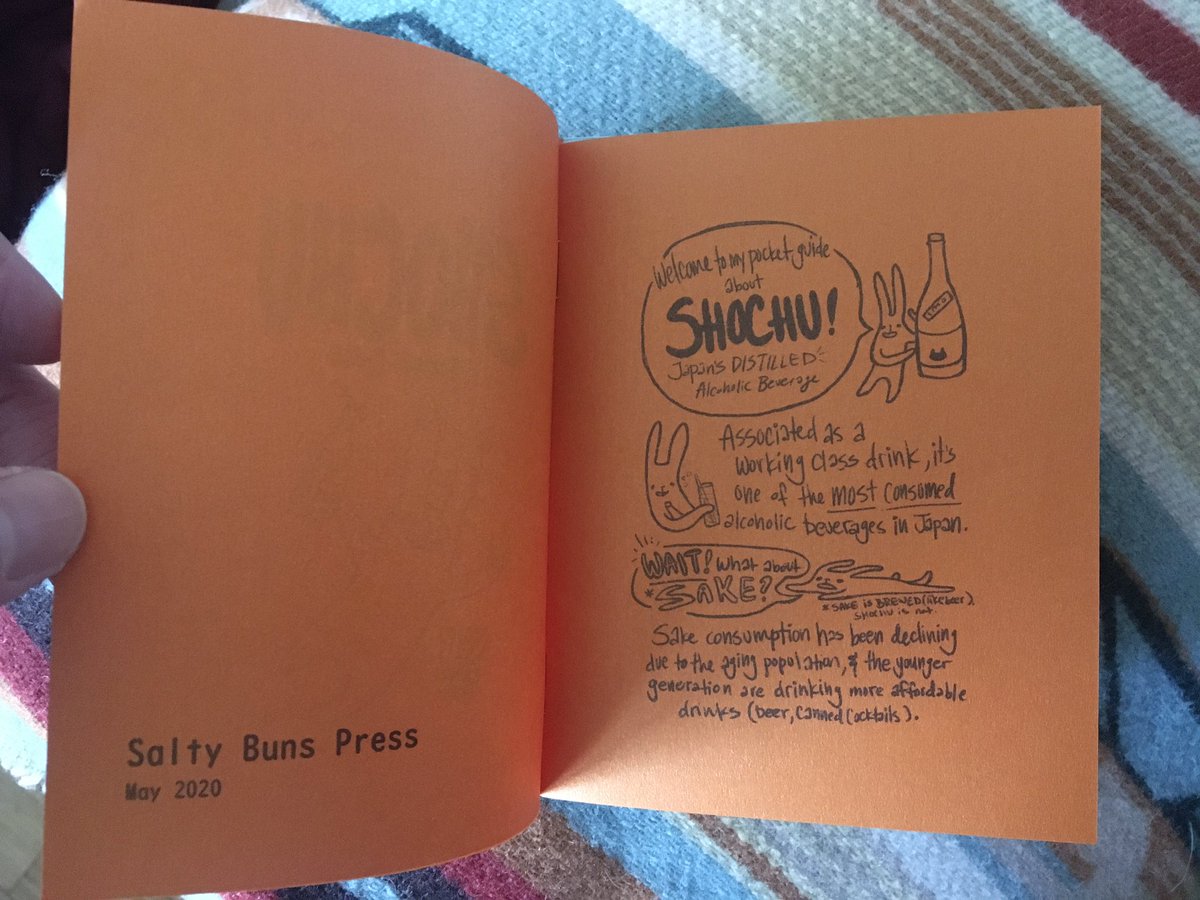 Salty Buns Press
May 2020
Welcome to my pocket guide
about
SHOCHU!
Japan's DISTILLED
Alcoholic Beverage
Associated as a
working class drink, it's
one of the most consumed
alcoholic beverages in Japan.
WAIT! What about
*SAKE?
*SAKE IS BREWED (like beer).
SHOCHU is not.
Sake consumption has been declining
due to the aging popolation, & the younger
generation are drinking more affordable
drinks (beer, canned cocktails).